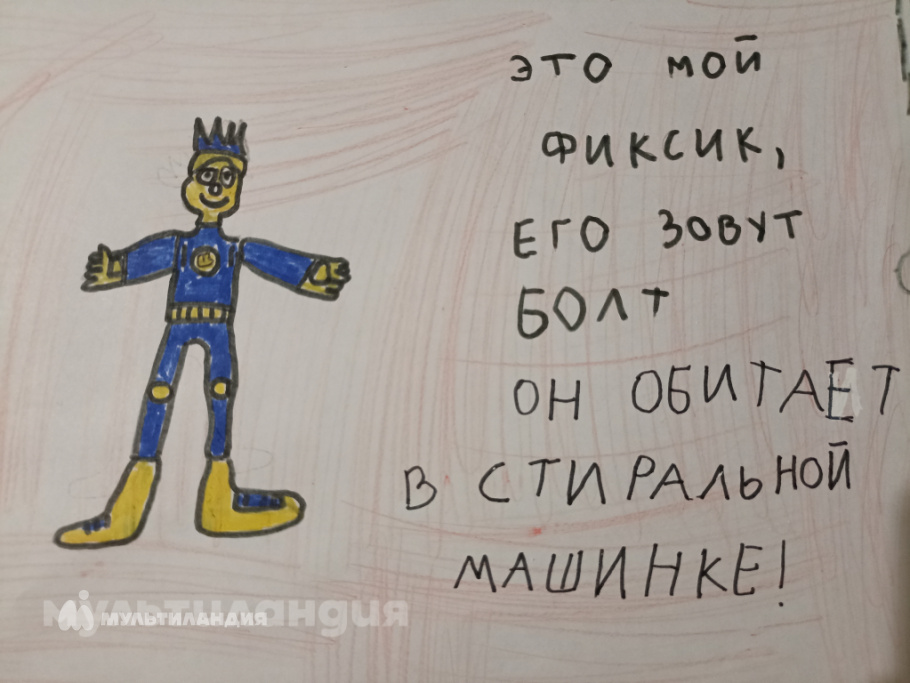 ЭТО МОЙ
ФИКСИК,
ЕГО ЗОВУТ
БОЛТ
ОН ОБИТАЕТ
В СТИРАЛЬНОЙ
МАШИНКЕ!
мультиландия
МУЛЬТИЛАНДИЯ